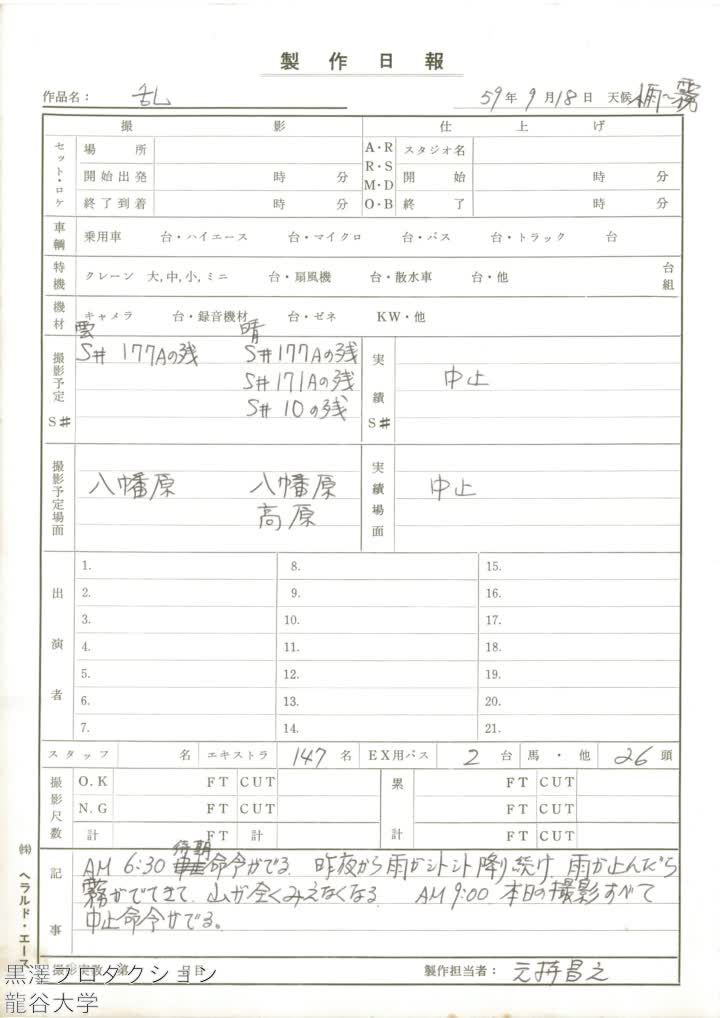 製作日報
作品名： 乱　59年9月18日 天候 雨〜霧
撮影　仕上げ
セット・ロケ　場所　A・R　スタジオ名
開始出発　時　分　R・S　開始　時　分
M・D
終了到着　時　分　O・B　終了　時　分
車輌　乗用車　台・ハイエース　台・マイクロ　台・バス　台・トラック　台
特機　クレーン 大,中,小,ミニ　台・扇風機　台・散水車　台・他　台組
機材　キャメラ　台・録音機材　台・ゼネ　KW・他
雲　晴
撮影予定S#　S# 177Aの残　S# 177Aの残　実績S#　中止
S# 171Aの残
S# 10の残
撮影予定場面　八幡原　八幡原　実績場面　中止
高原
出演者
1.　8.　15.
2.　9.　16.
3.　10.　17.
4.　11.　18.
5.　12.　19.
6.　13.　20.
7.　14.　21.
スタッフ　名　エキストラ　147名　EX用バス　2台　馬・他　26頭
撮影尺数　O.K　FT　CUT　累計　FT　CUT
N.G　FT　CUT　FT　CUT
計　FT　計　FT　CUT
記事
AM 6:30 待期命令がでる。昨夜から雨がシトシト降り続け、雨が止んだら
霧がでてきて、山が全くみえなくなる。 AM 9:00 本日の撮影すべて
中止命令がでる。
撮影実数　第　日目　製作担当者： 元持昌之
㈱ヘラルド・エース
黒澤プロダクション
龍谷大学